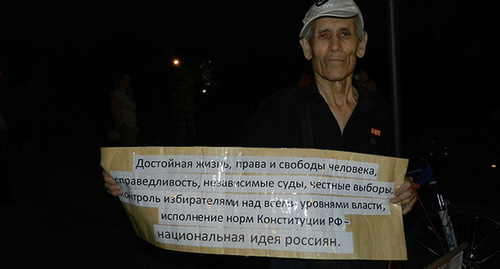 Достойная жизнь, права и свободы человека,
справедливость, независимые суды, честные выборы,
контроль избирателями над всеми уровнями власти,
исполнение норм Конституции РФ –
национальная идея россиян.